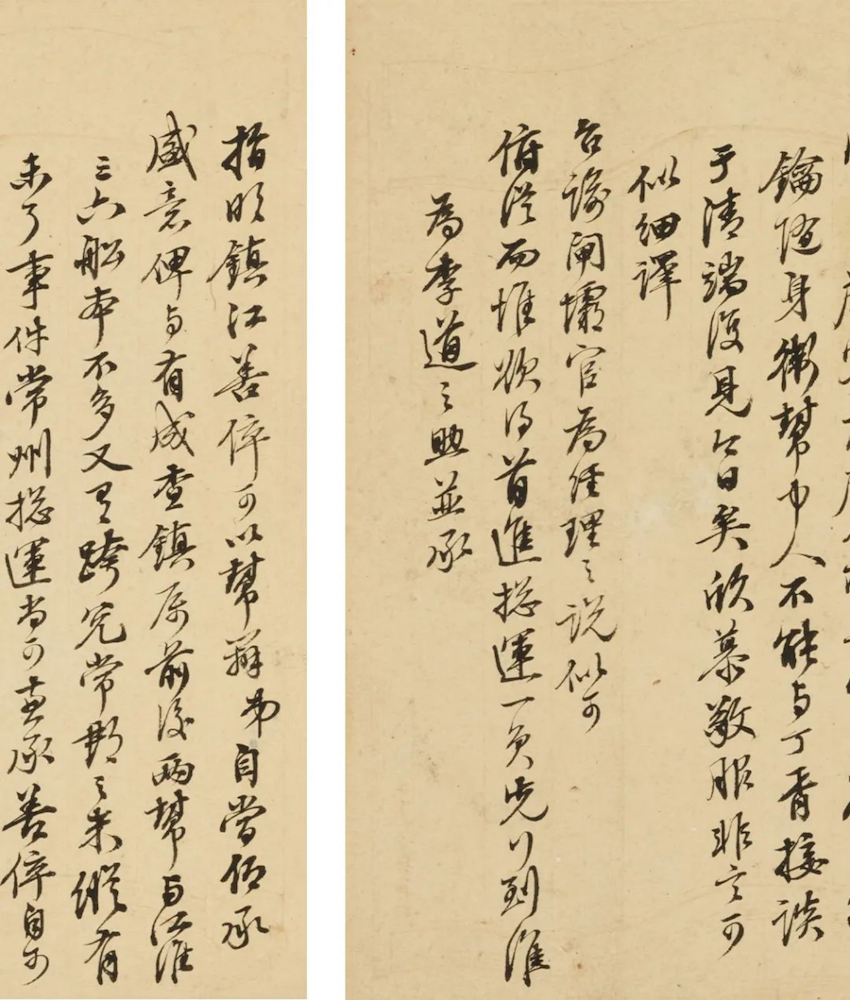 鑰隨身衛幫中人不能与丁胥接談
于清端復見今日矣欣慕敬服非言可
似細譯
台諭閘壩官為經理之說似可
俯從而惟欲得首進揔運一員先行到淮
為李道之助並承
指明鎮江善倅可以幫辦弟自當仰承
盛意俾与有成查鎮屬前後兩幫与江淮
三六船本不多又里跨兌常郡之米縱有
未了事件常州揔運尚可兼承善倅自可